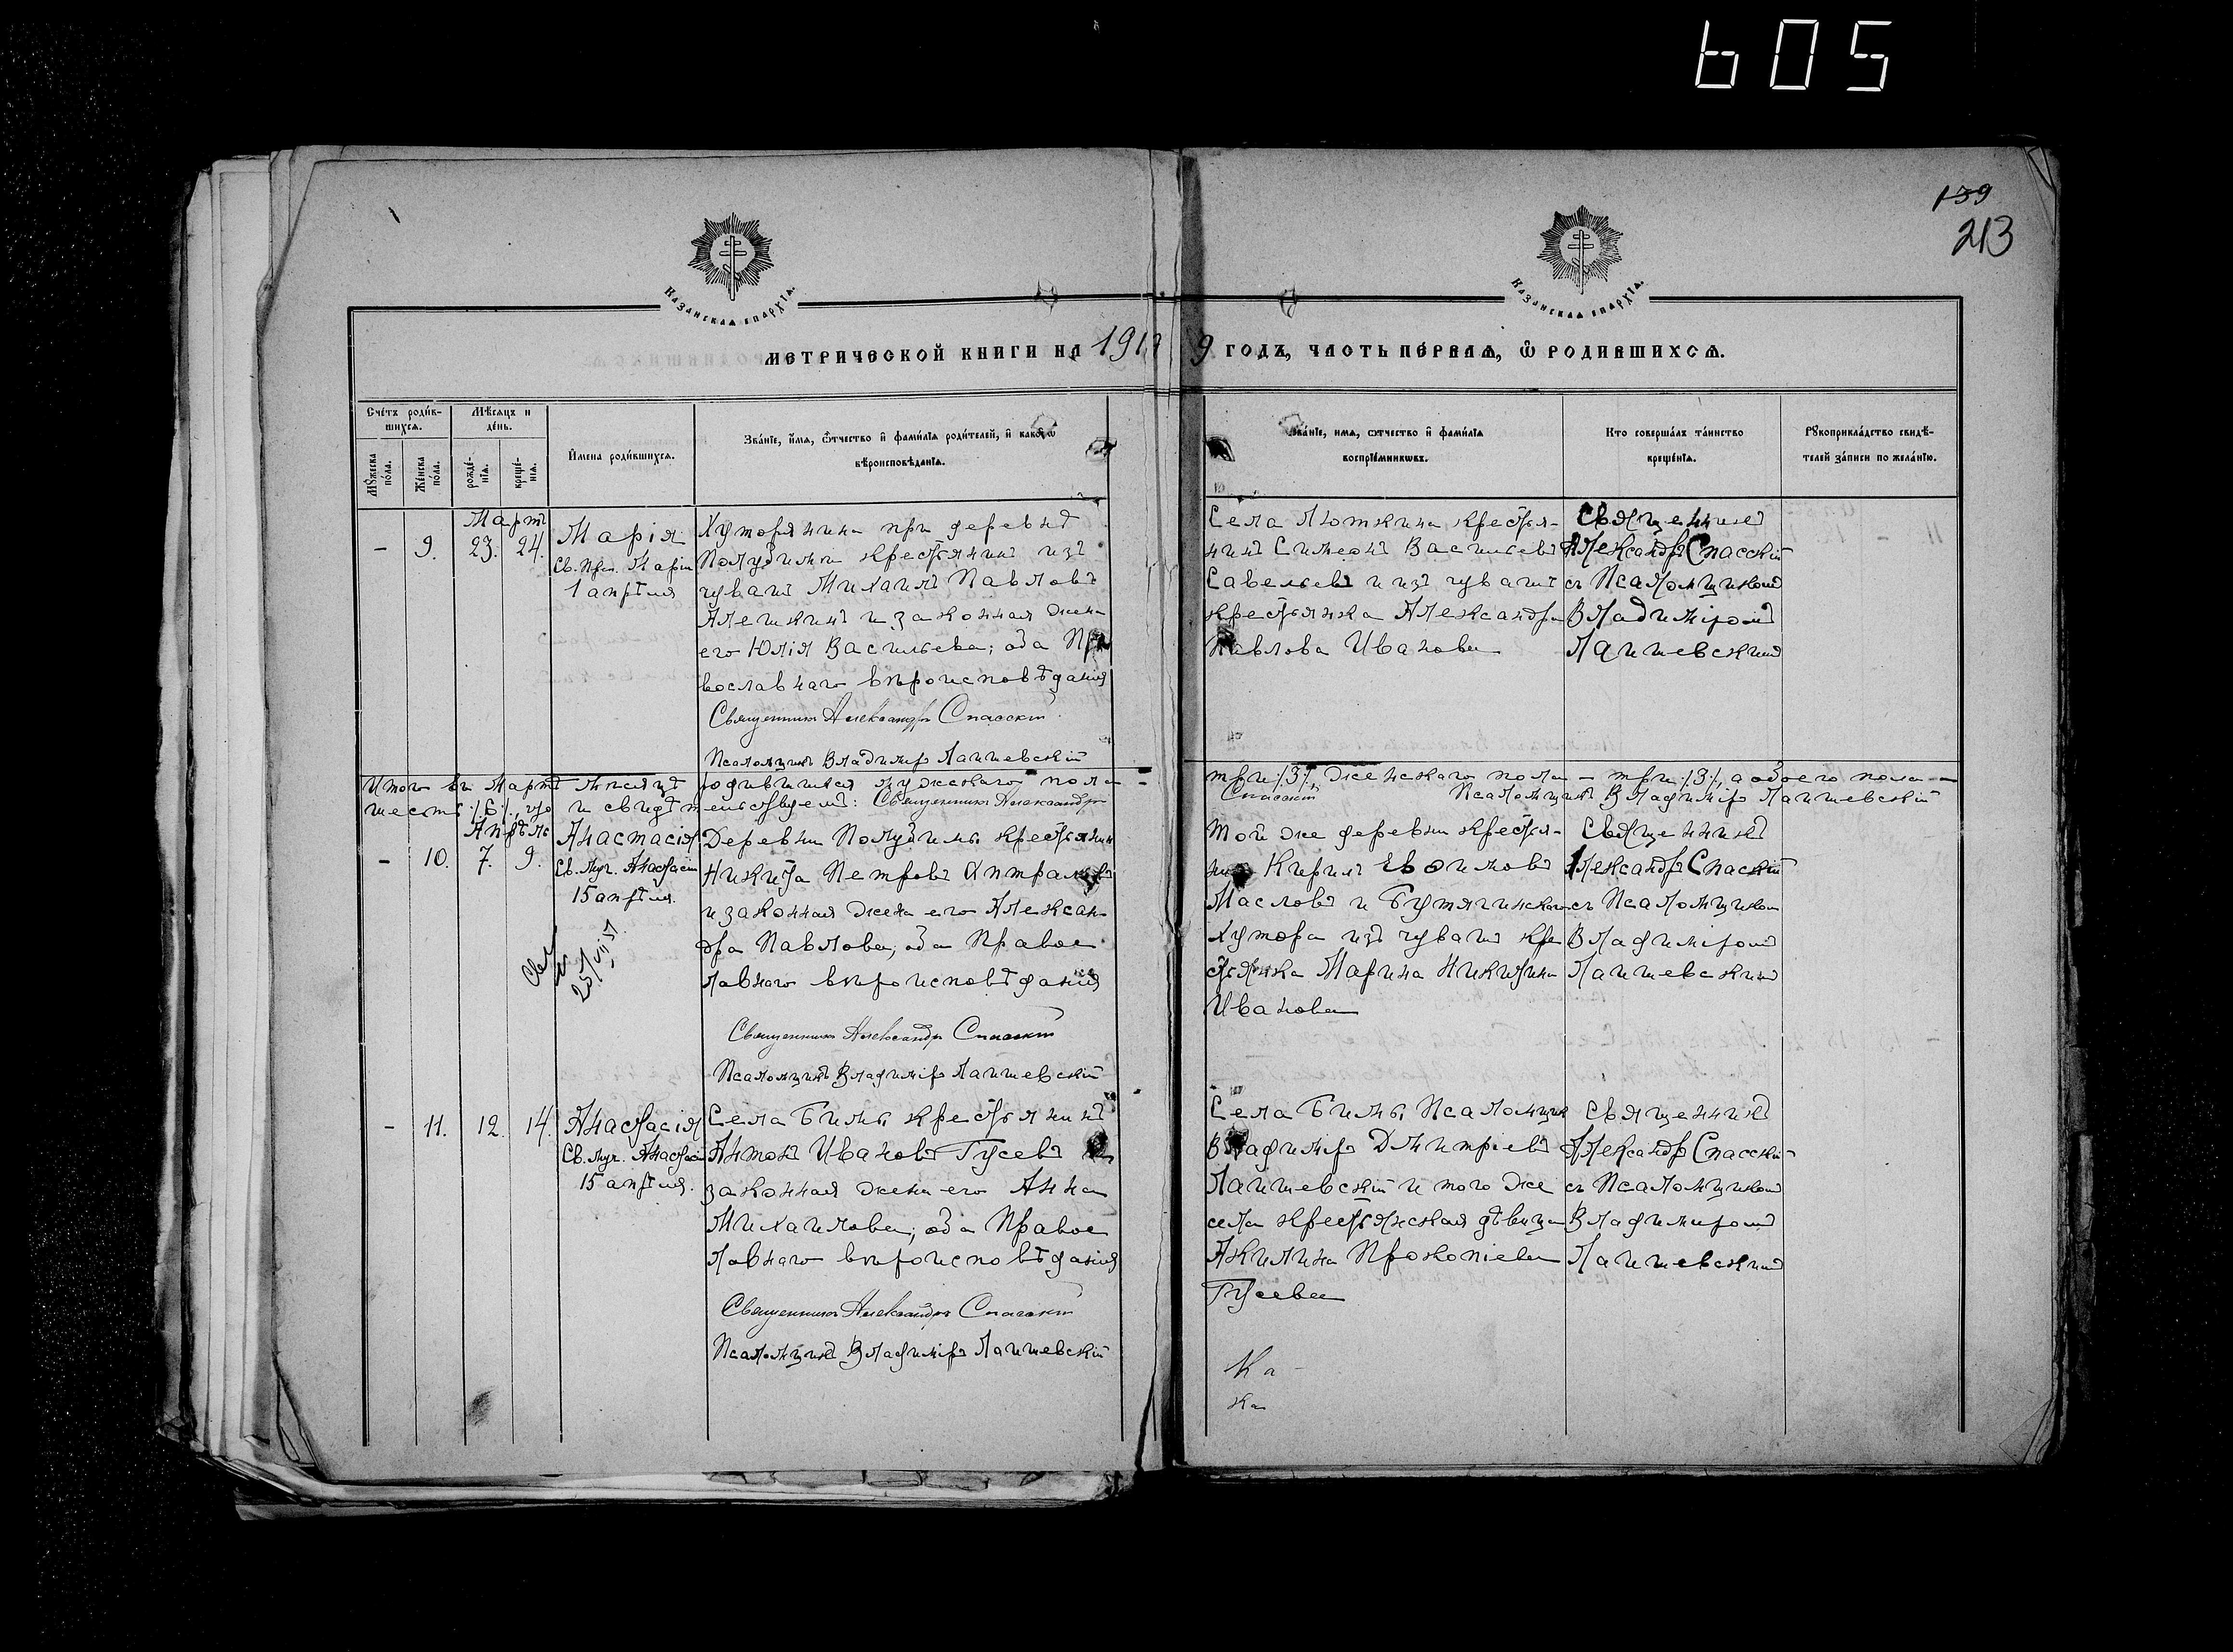 605
139
213
Казанская епархія.
Казанская епархія.
Метрической книги на 1919 годъ, часть пе́рваѧ, ѡ родившихсѧ.
Сче́тъ роди́в-
шихсѧ.
Мѣсѧцъ и
де́нь.
Му́жеска
по́ла.
Же́нска
по́ла.
рожде́-
нїѧ.
креще́-
нїѧ.
Имена роди́вшихсѧ.
Зва́нїе, и́мѧ, ѻ҆́тчество и҆ фами́лїѧ роди́телей, и҆ како́гѡ
вѣроисповѣ́данїѧ.
Зва́нїе, имѧ, ѻтчество и҆ фами́лїѧ
воспрїе́мникѡвъ.
Кто соверша́лъ та́инство
креще́нїѧ.
Рꙋкоприкла́дство свидѣ́-
телей за́писи по жела́нїю.
Мартъ
- 9. 23. 24.
Марія
Св. Прп. Маріи
1 апрѣля
Хуторянинъ при деревнѣ
Полудинки крестьянинъ изъ
чувашъ Михаилъ Павловъ
Алешкинъ и законная жена
его Юлія Васильева; оба Пра
вославнаго вѣроисповѣданія
Священникъ Александръ Спасскій
Псаломщикъ Владиміръ Лаишевскій
Села Люткина крестья-
нинъ Симеонъ Васильевъ
Савельевъ и изъ чувашъ
крестьянка Александра
Павлова Иванова
Священникъ
Александръ Спасскій
съ Псаломщикомъ
Владиміромъ
Лаишевскимъ
Итого въ Мартѣ мѣсяцѣ родившихся мужскаго пола - три /3/, женскаго пола - три /3/, а обоего пола -
шесть /6/, что и свидѣтельствуемъ: Священникъ Александръ Спасскій Псаломщикъ Владиміръ Лаишевскій
Апрѣль
- 10. 7. 9.
Анастасія
Св. Муч. Анастасіи
15 апрѣля.
25/VII 51
Деревни Полудины крестьянинъ
Никита Петровъ
и законная жена его Алексан-
дра Павлова, оба Правос
лавнаго вѣроисповѣданія
Священникъ Александръ Спасскій
Псаломщикъ Владиміръ Лаишевскій
Той же деревни крестья-
нинъ Кирилъ Евѳимовъ
Масловъ и Бутягинскаго
Хутора изъ чувашъ кре
стьянка Марина Никитина
Иванова
Священникъ
Александръ Спасскій
съ Псаломщикомъ
Владиміромъ
Лаишевскимъ
- 11. 12. 14.
Анастасія
Св. муч. Анастасіи
15 апрѣля.
Села Бимы крестьянинъ
Антонъ Ивановъ Гусевъ и
законная жена его Анна
Михаилова; оба Правос
лавнаго вѣроисповѣданія
Священникъ Александръ Спасскій
Псаломщикъ Владиміръ Лаишевскій
Села Бимы Псаломщик
Владиміръ Димитріевъ
Лаишевскій и того же
села крестьянская дѣвица
Акилина Прокопіева
Гусева
Ка-
ка
Священникъ
Александръ Спасскій
съ Псаломщикомъ
Владимиромъ
Лаишевскимъ